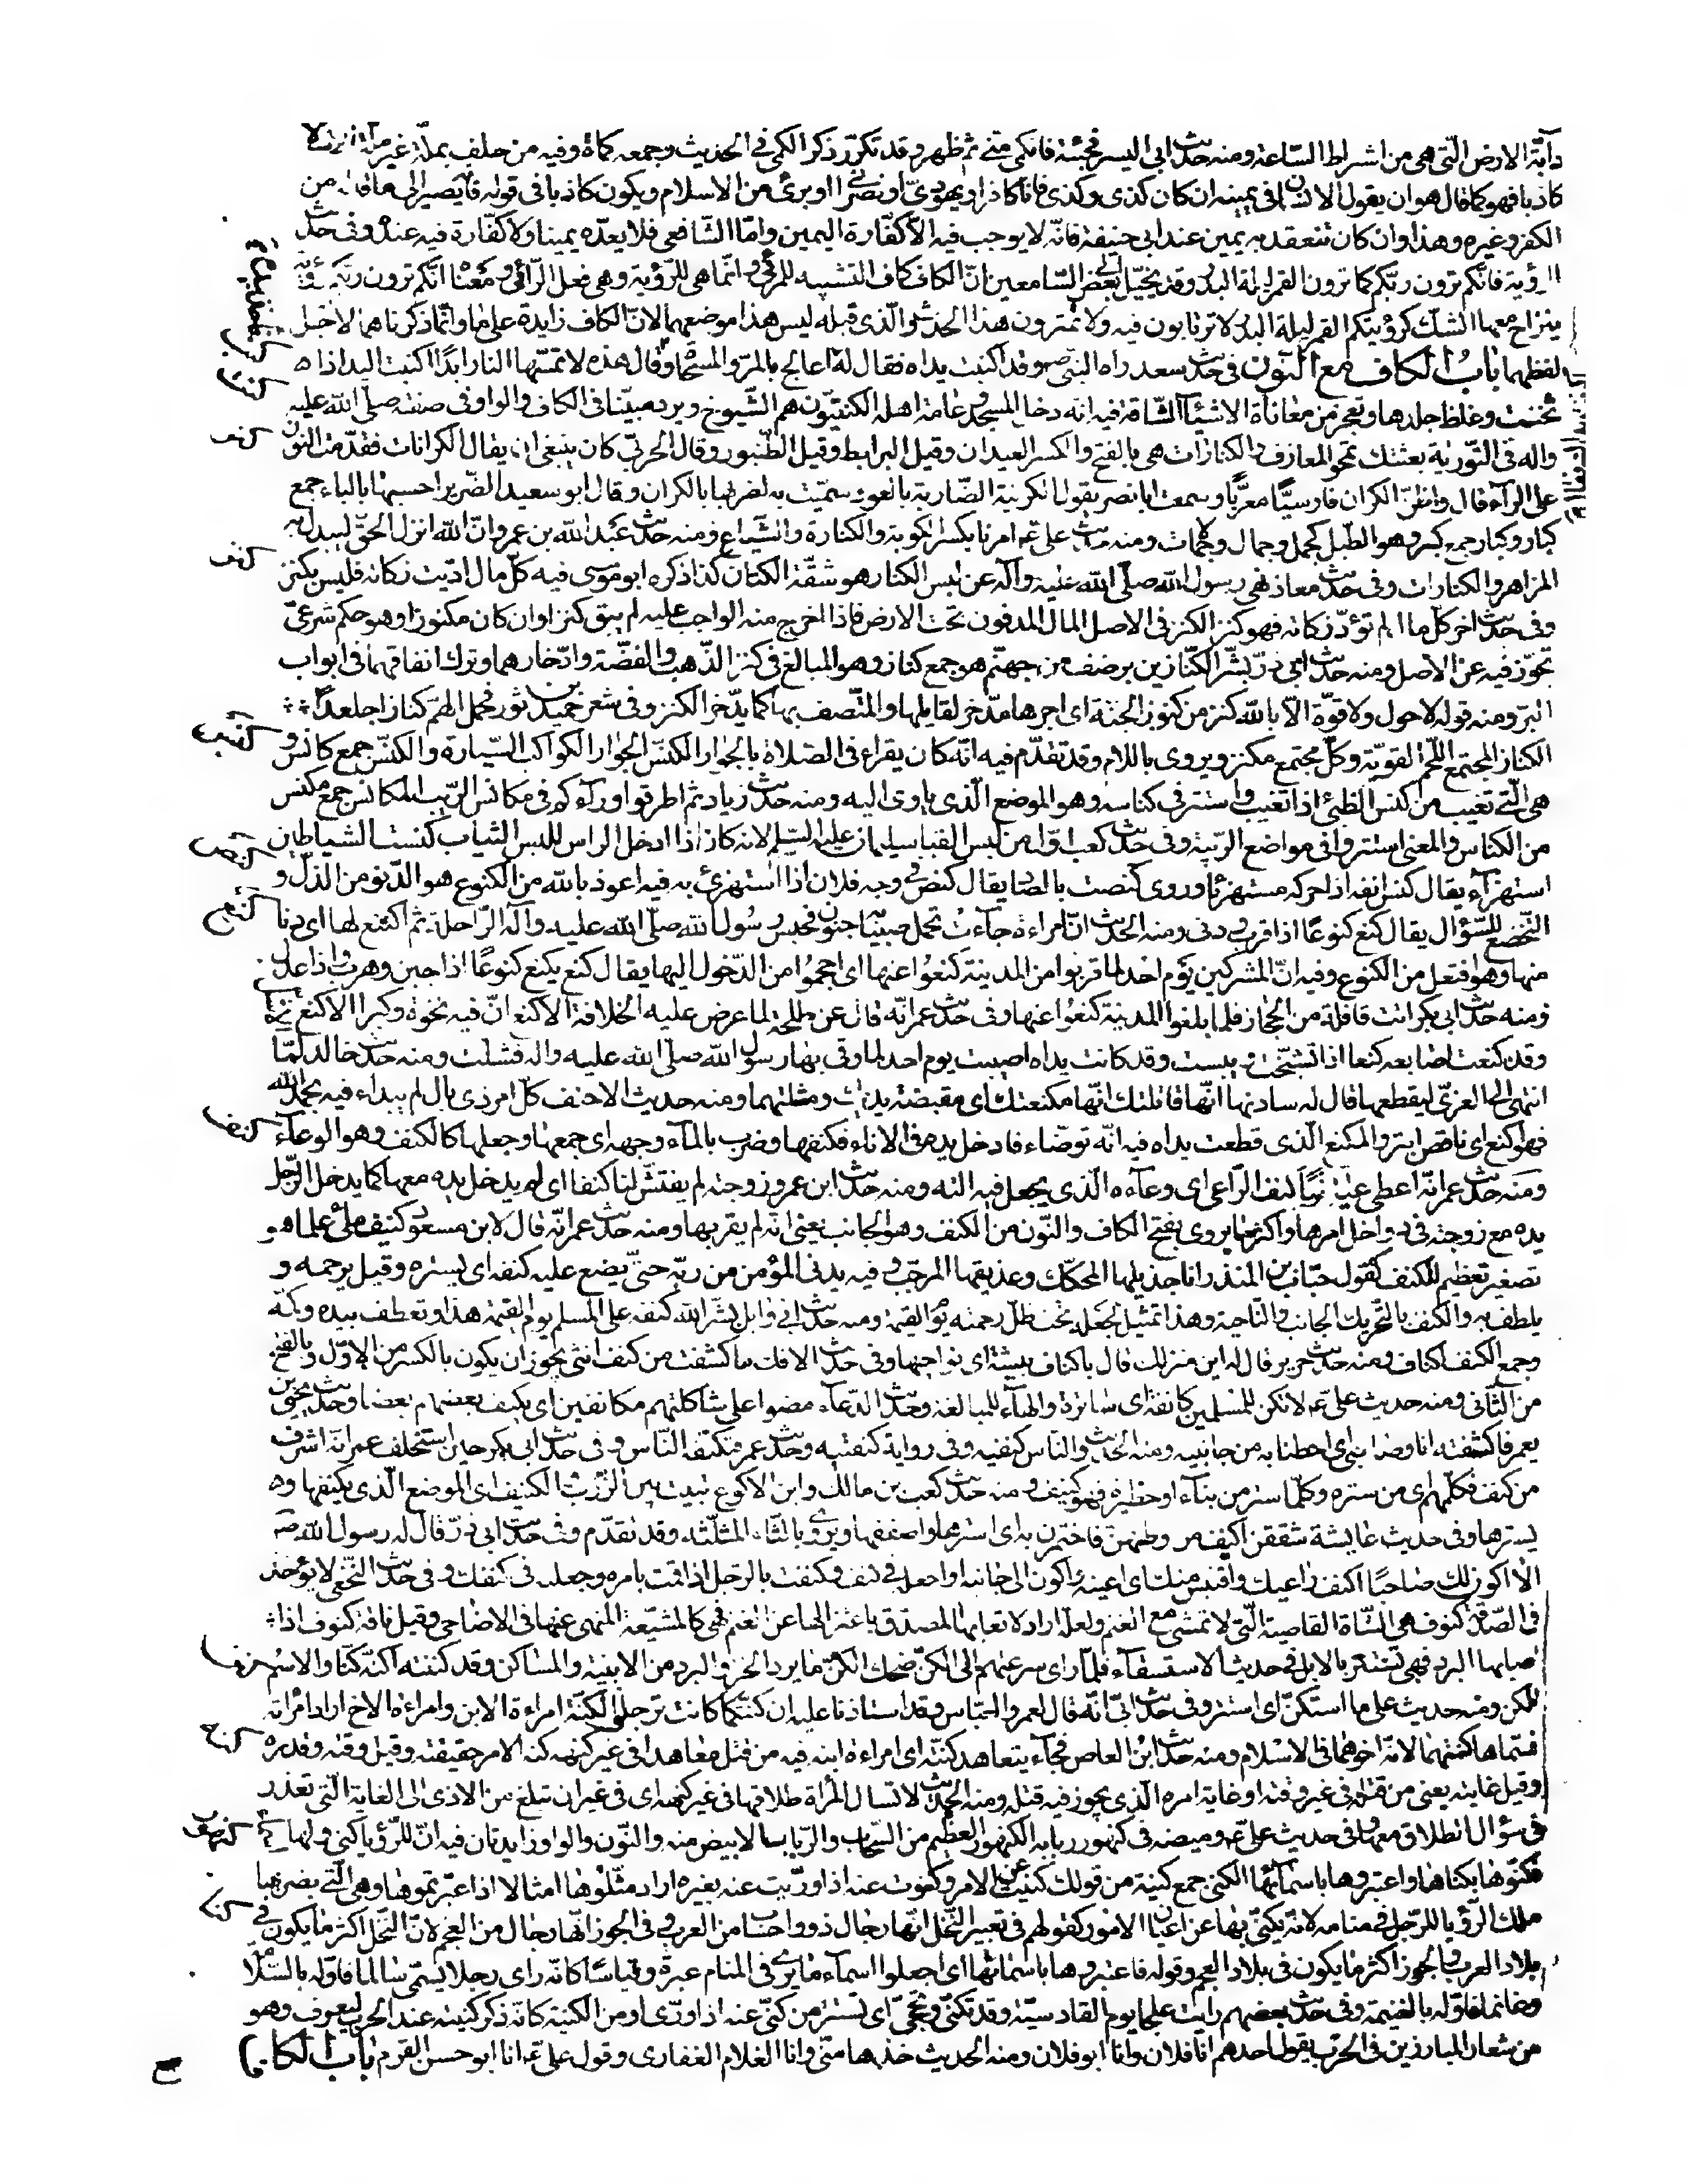 دآبّة الارض التّى هى من اشراط السّاعة ومنه حديث ابى اليسر فجئته فانكمى منّى ثم ظهر وقد تكرّر ذكر الكمى فى الحديث وجمعه كماة وفيه من حلف بملّة غير ملّة الاسلام
كاذبا فهو كما قال هو ان يقول الانسان فى يمينه ان كان كذى وكذى فانا كافر او يهودىّ او نصرانىّ او برئ من الاسلام ويكون كاذبا فى قوله فانّه يصير الى ما قاله من
الكفر وغيره وهذا وان كان تنعقد به يمين عند ابى حنيفة فانّه لا يوجب فيه الّا كفّارة اليمين وامّا الشّافعى فلا يعدّه يمينا ولا كفّارة فيه عنده وفى حديث
الرؤية فانّكم ترون ربّكم كما ترون القمر ليلة البدر وقد يخيّل الى بعض السّامعين انّ الكاف كاف التشبيه للمرئى وانّما هى للرّؤية وهى فعل الرّائى ومعناه انّكم ترون ربّكم رؤية
ينزاح معها الشّك كرؤيتكم القمر ليلة البدر لا ترتابون فيه ولا تمترون هذا الحديث والّذى قبله ليس هذا موضعهما لانّ الكاف زايدة على ما وانّما ذكرناهما لاجل
لفظهما باب الكاف مع النّون فى حديث سعد راه النبى ص وقد اكنبت يداه فقال له اعالج بالمرّ والمسحاة وقال هذه لا تمسّها النار ابدًا اكنبت اليد اذا
ثخنت وغلظ جلدها وتعجر من معاناة الاشيآء الشّاقة فيه انه دخل المسجد وعامة اهله الكنتيّون هم الشّيوخ ويرد مبيّنا فى الكاف والواو فى صفته صلّى الله عليه
واله فى التّورية بعثتك تمحو المعازف والكنارات هى بالفتح والكسر العيدان وقيل البرابط وقيل الطّنبور وقال الحربّى كان ينبغى ان يقال الكرانات فقدّمت النون
على الرآء قال واظنّ الكران فارسيًّا معرّبًا وسمعت ابا نصر يقول الكرينة الضّاربة بالعود سمّيت به لضربها بالكران وقال ابو سعيد الضّرير احسبها بالباء جمع
كبار وكبار جمع كبر وهو الطبل كجمل وجمال وجمالات ومنه حديث على ع امرنا بكسر الكوبة والكنارة والشّياع ومنه حديث عبد الله بن عمرو انّ الله انزل الحقّ ليبدل به
المزاهر والكنارات وفى حديث معاذ نهى رسول الله صلّى الله عليه وآله عن لبس الكنار هو شقّة الكتان كذا ذكره ابو موسى فيه كلّ مال ادّيت زكاته فليس بكنز
وفى حديث اخر كلّ ما لم تؤدّ زكاته فهو كنز الكنز فى الاصل المال المدفون تحت الارض فاذا اخرج منه الواجب عليه لم يبق كنزا وان كان مكنوزا وهو حكم شرعىّ
تجوّز فيه عن الاصل ومنه حديث ابى ذرّ بشّر الكنّازين برضف من جهنّم هو جمع كناز وهو المبالغ فى كنز الذّهب والفضّة وادّخارهما وترك انفاقهما فى ابواب
البرّ ومنه قوله لا حول ولا قوّة الّا بالله كنز من كنوز الجنّة اى اجرها مدّخر لقايلها والمتّصف بها كما يدّخر الكنز وفى شعر حميد بن ثور فحمل الهمّ كنازا جلعدًا
الكناز المجتمع اللّحم القويّه وكلّ مجتمع مكتنز ويروى باللام وقد تقدّم فيه انّه كان يقراء فى الصّلاة بالجوار الكنّس الجوار الكواكب السّيارة والكنّس جمع كانس و
هى الّتى تغيب من كنس الظبئ اذا تغيب واستتر فى كناسه وهو الموضع الّذى ياوى اليه ومنه حديث زياد ثم اطرقوا ورآءكم فى مكانس الرّيب المكانس جمع مكنس
من الكناس والمعنى استتروا فى مواضع الرّيبة وفى حديث كعب اوّل من لبس القبا سليمان عليه السّلم لانه كان اذا ادخل الراس للبس الثياب كنست الشياطين
استهزآء يقال كنس انفه اذا حركه مستهزئا وروى كنصت بالصّاد يقال كنص فى وجه فلان اذا استهزئ به فيه اعوذ بالله من الكنوع هو الدّنو من الذلّ و
التّخضع للسّؤال يقال كنع كنوعًا اذا قرب ودنى ومنه الحديث انّ امراءة جآءت تحمل صبيّا به جنون فحبس رسول الله صلّى الله عليه وآله الرّاحلة ثم اكتنع لها اى دنا
منها وهو افتعل من الكنوع وفيه انّ المشركين يوم احد لما قربوا من المدينة كنعوا عنها اى احجموا من الدّخول اليها يقال كنع يكنع كنوعًا اذا جبن وهرب واذا عدل
ومنه حديث ابى بكر اتت قافلة من الحجاز فلما بلغوا المدينة كنعوا عنها وفى حديث عمر انّه قال عن طلحة لما عرض عليه الخلافة الاكنع انّ فيه نخوة وكبرا الاكنع
وقد كنعت اصابعه كنعا اذا تشنّجت ويبست وقد كانت يداه اصيبت يوم احد لما وقى بها رسول الله صلّى الله عليه واله فشلت ومنه حديث خالد لمّا
انتهى الى العزّى ليقطعها قال له سادنها انّها قاتلتك انّها مكنعتك اى مقبضة يديك ومشلتهما ومنه حديث الاحنف كلّ امر ذى بال لم يبداء فيه بحمد الله
فهو اكنع اى ناقص ابتر والمكنع الّذى قطعت يداه فيه انّه توضّاء فادخل يده فى الاناء فكنفها وضرب بالمآء وجهه اى جمعها وجعلها كالكنف وهو الوعآء
ومنه حديث عمر انّه اعطى عياضا كنف الرّاعى اى وعآءه الّذى يجعل فيه الته ومنه حديث ابن عمرو زوجته لم يفتّش لنا كنفا اى لم يدخل يده معها كما يدخل الرّجل
يده مع زوجته فى دواخل امرها واكثر ما يروى بفتح الكاف والنّون من الكنف وهو الجانب يعنى انه لم يقربها ومنه حديث عمر انّه قال لابن مسعود كنيف ملئ علما هو
تصغير تعظيم للكنف كقول حباب بن المنذر انا جذيلها المحكّك وعذيقها المرجّب وفيه يدنى المؤمن من ربّه حتّى يضع عليه كنفه اى يستره وقيل يرحمه و
يلطف به والكنف بالتّحريك الجانب والنّاحية وهذا تمثيل لجعله تحت ظلّ رحمته يوم القيمة ومنه حديث ابى وابل نشر الله كنفه على المسلم يوم القيمة هكذا وتعطف بيده وكمّه
وجمع الكنف اكناف ومنه حديث جرير قال له اين منزلك قال باكناف بيشة اى نواحيها وفى حديث الافك ما كشفت من كنف انثى يجوز ان يكون بالكسر من الاوّل وبالفتح
من الثّانى ومنه حديث علىّ ع لا تكن للمسلمين كانفة اى ساترة والهآء للمبالغة وحديث الدّعآء مضوا على شاكلتهم مكانفين اى يكنف بعضهم بعضا وحديث يحيى بن
يعمر فاكتنفته انا وصاحبى اى احطنا به من جانبيه ومنه الحديث والنّاس كنفيه وفى رواية كنفتيه وحديث عمر فتكنّفه النّاس وفى حديث ابى بكر حين استخلف عمر انّه اشرف
من كنف فكلّمهم اى من سترة وكلّما ستر من بناء او حظيرة فهو كنيف ومنه حديث كعب بن مالك وابن الاكوع تبيت بين الزّرب والكنيف اى الموضع الّذى يكنفها و
يسترها وفى حديث عايشة شققن اكنف مروطهنّ فاختمرن به اى استرها واصفقها ويروى بالثّاء المثلّثة وقد تقدّم وفى حديث ابى ذرّ قال له رسول الله ص
الا اكون لك صاحبًا اكنف راعيك واقتبس منك اى اعينه واكون الى جانبه او اجعله فى كنف وكنفت بالرّجل اذا قمت بامره وجعلته فى كنفك وفى حديث النّخعى لا يؤخذ
فى الصّدقة كنوف هى الشّاة القاصية الّتى لا تمشى مع الغنم ولعلّه اراد لاتعابها المصدّق باعتزالها عن الغنم فهى كالمشيّعة المنهى عنها فى الاضاحى وقيل ناقة كنوف اذا
اصابها البرد فهى تستتر بالابل فى حديث الاستسقآء فلمّا راى سرعتهم الى الكنّ ضحك الكنّ ما يرد الحرّ والبرد من الابنية والمساكن وقد كننته اكنّه كنّا والاسم
الكن ومنه حديث على ما استكنّ اى استتر وفى حديث ابىّ انّه قال لعمر والعبّاس وقد استاذنا عليه ان كنّتكما كانت ترجّلنى الكنّة امراءة الابن وامراءة الاخ اراد امراته
فسمّاها كنتهما لانّه اخوهما فى الاسلام ومنه حديث ابن العاص فجآء يتعاهد كنّته اى امراءة ابنه فيه من قتل معاهدا فى غير كنهه كنه الامر حقيقته وقيل وقته وقدره
وقيل غايته يعنى من قتله فى غير وقته او غاية امره الّذى يجوز فيه قتله ومنه الحديث لا تسال المرأة طلاقها فى غير كنهه اى فى غير ان تبلغ من الاذى الى الغاية الّتى تعذر
فى سؤال الطلاق معها وفى حديث علىّ ع وميضه فى كنهور ربابه الكنهور العظيم من السّحاب والرّباب الابيض منه والنّون والواو زايدتان فيه انّ للرّؤيا كنى ولها اسمآء
فكنّوها بكناها واعتبروها باسمآئها الكنى جمع كنية من قولك كنيت عن الامر وكنوت عنه اذا ورّيت عنه بغيره اراد مثّلوها امثالا اذا عبّرتموها وهى الّتى يضربها
ملك الرؤيا للرّجل فى منامه لانّه يكنّى بها عن اعيان الامور كقولهم فى تعبير النّخل انّها رجال ذوو احساب من العرب وفى الجوز انّها رجال من العجم لانّ النّخل اكثر ما يكون فى
بلاد العرب والجوز اكثر ما يكون فى بلاد العجم وقوله فاعتبروها باسمائها اى اجعلوا اسمآء ما يرى فى المنام عبرة وقياسًا كانّه راى رجلا يسمّى سالما فاوّله بالسّلامة
وغانما فاوّله بالغنيمة وفى حديث بعضهم رايت علجا يوم القادسيّة وقد تكنّى وتحجّى اى تستّر من كنّى عنه اذا ورّى او من الكنية كانّه ذكر كنيته عند الحرب ليعرف وهو
من شعار المبارزين فى الحرب يقول احدهم انا فلان وانا ابو فلان ومنه الحديث خذها منّى وانا الغلام الغفارى وقول علىّ ع انا ابو حسن القرم باب الكاف